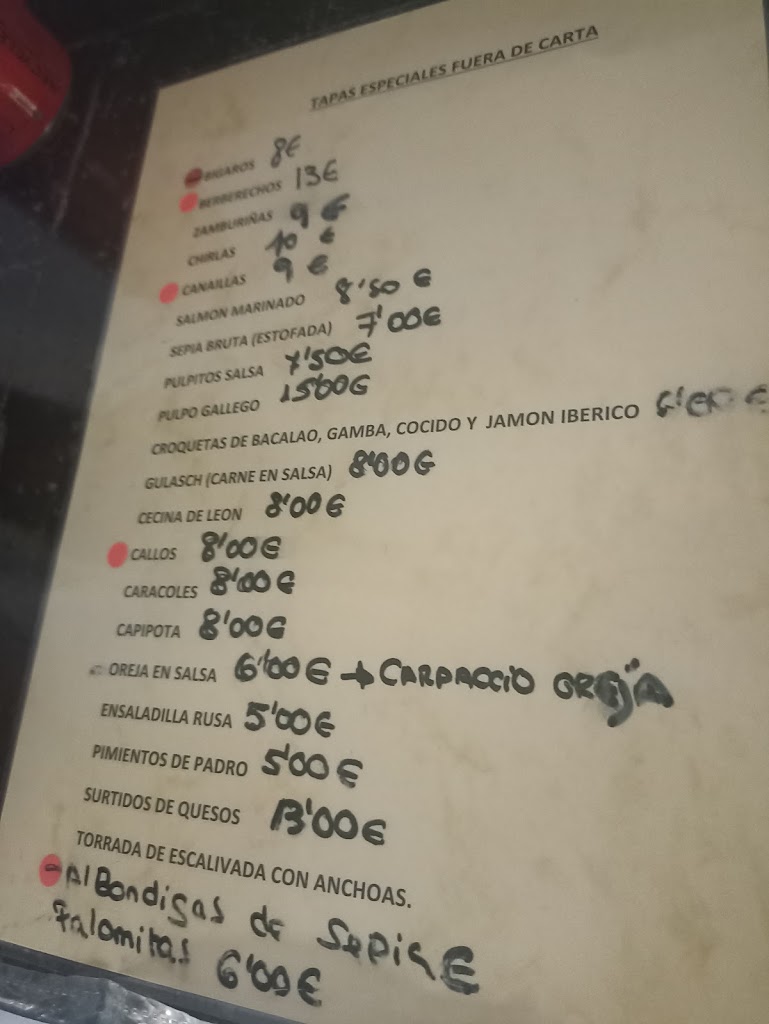 TAPAS ESPECIALES FUERA DE CARTA
BIGAROS 8€
BERBERECHOS 13€
ZAMBURIÑAS 9 €
CHIRLAS 10 €
CANAILLAS 9 €
SALMON MARINADO 8'50 €
SEPIA BRUTA (ESTOFADA) 7'00€
PULPITOS SALSA 7'50€
PULPO GALLEGO 15'00€
CROQUETAS DE BACALAO, GAMBA, COCIDO Y JAMON IBERICO
GULASCH (CARNE EN SALSA) 8'00€
CECINA DE LEON 8'00€
CALLOS 8'00€
CARACOLES 8'00€
CAPIPOTA 8'00€
OREJA EN SALSA 6'00€ → CARPACCIO OREJA
ENSALADILLA RUSA 5'00€
PIMIENTOS DE PADRO 5'00€
SURTIDOS DE QUESOS 13'00€
TORRADA DE ESCALIVADA CON ANCHOAS.
-AlBondigas de Sepia €
Palomitas 6'00€